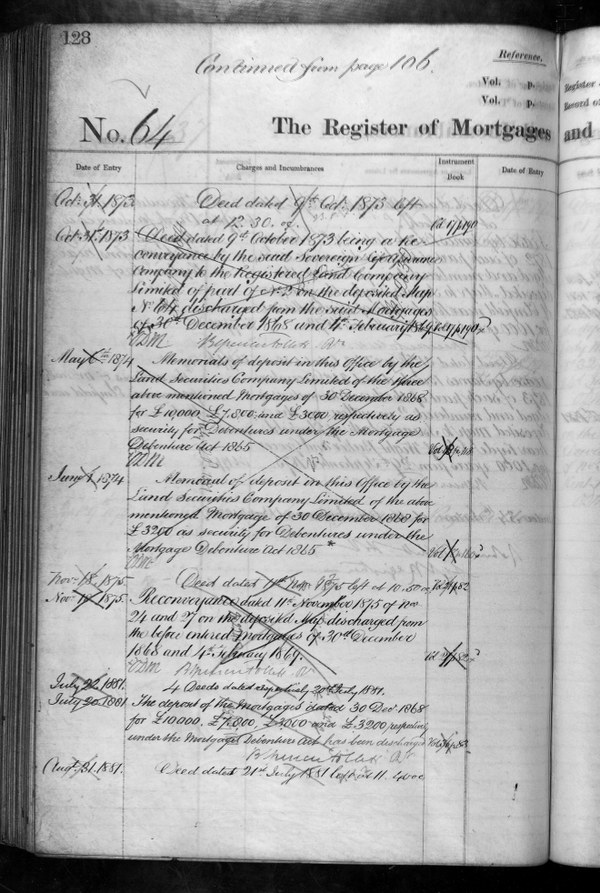 128
Continued from page 106.
Reference.
Vol. p.
Vol. p.
Register
Record of
No. 64 The Register of Mortgages and
Date of Entry Charges and Incumbrances Instrument Book Date of Entry
Oct. 31. 1873 Deed dated 9th Oct. 1873 left
at 12.30. of
Oct. 31. 1873 Deed dated 9th October 1873 being a Re
conveyance by the said Sovereign Life Assurance
Company to the Registered Land Company
Limited of part of No. 2 on the deposited Map
No. 64 discharged from the said Mortgages
of 30th December 1868 and 4th February 1869
May 1874 Memorials of deposit in this Office by the
Land Securities Company Limited of the three
above mentioned Mortgages of 30 December 1868
for £10,000, £7,800, and £3000 respectively as
security for Debentures under the Mortgage
Debenture Act 1865
June 1. 1874 Memorial of deposit in this Office by the
Land Securities Company Limited of the above
mentioned Mortgage of 30 December 1868 for
£3200 as security for Debentures under the
Mortgage Debenture Act 1865 *
Nov. 18. 1875 Deed dated 11th Nov. 1875 left at 10.50
Nov. 18. 1875. Reconveyance dated 11th November 1875 of Nos
24 and 27 on the deposited Map discharged from
the before entered mortgages of 30th December
1868 and 4th February 1869.
July 1881. 4 Deeds dated respectively 20th July 1881.
July 20. 1881 The deposit of the mortgages dated 30 Decr 1868
for £10000, £7,800, £3000 and £3200 respectively
under the Mortgage Debenture Act has been discharged
Augt. 31. 1881. Deed dated 21st July 1881 left at 11.